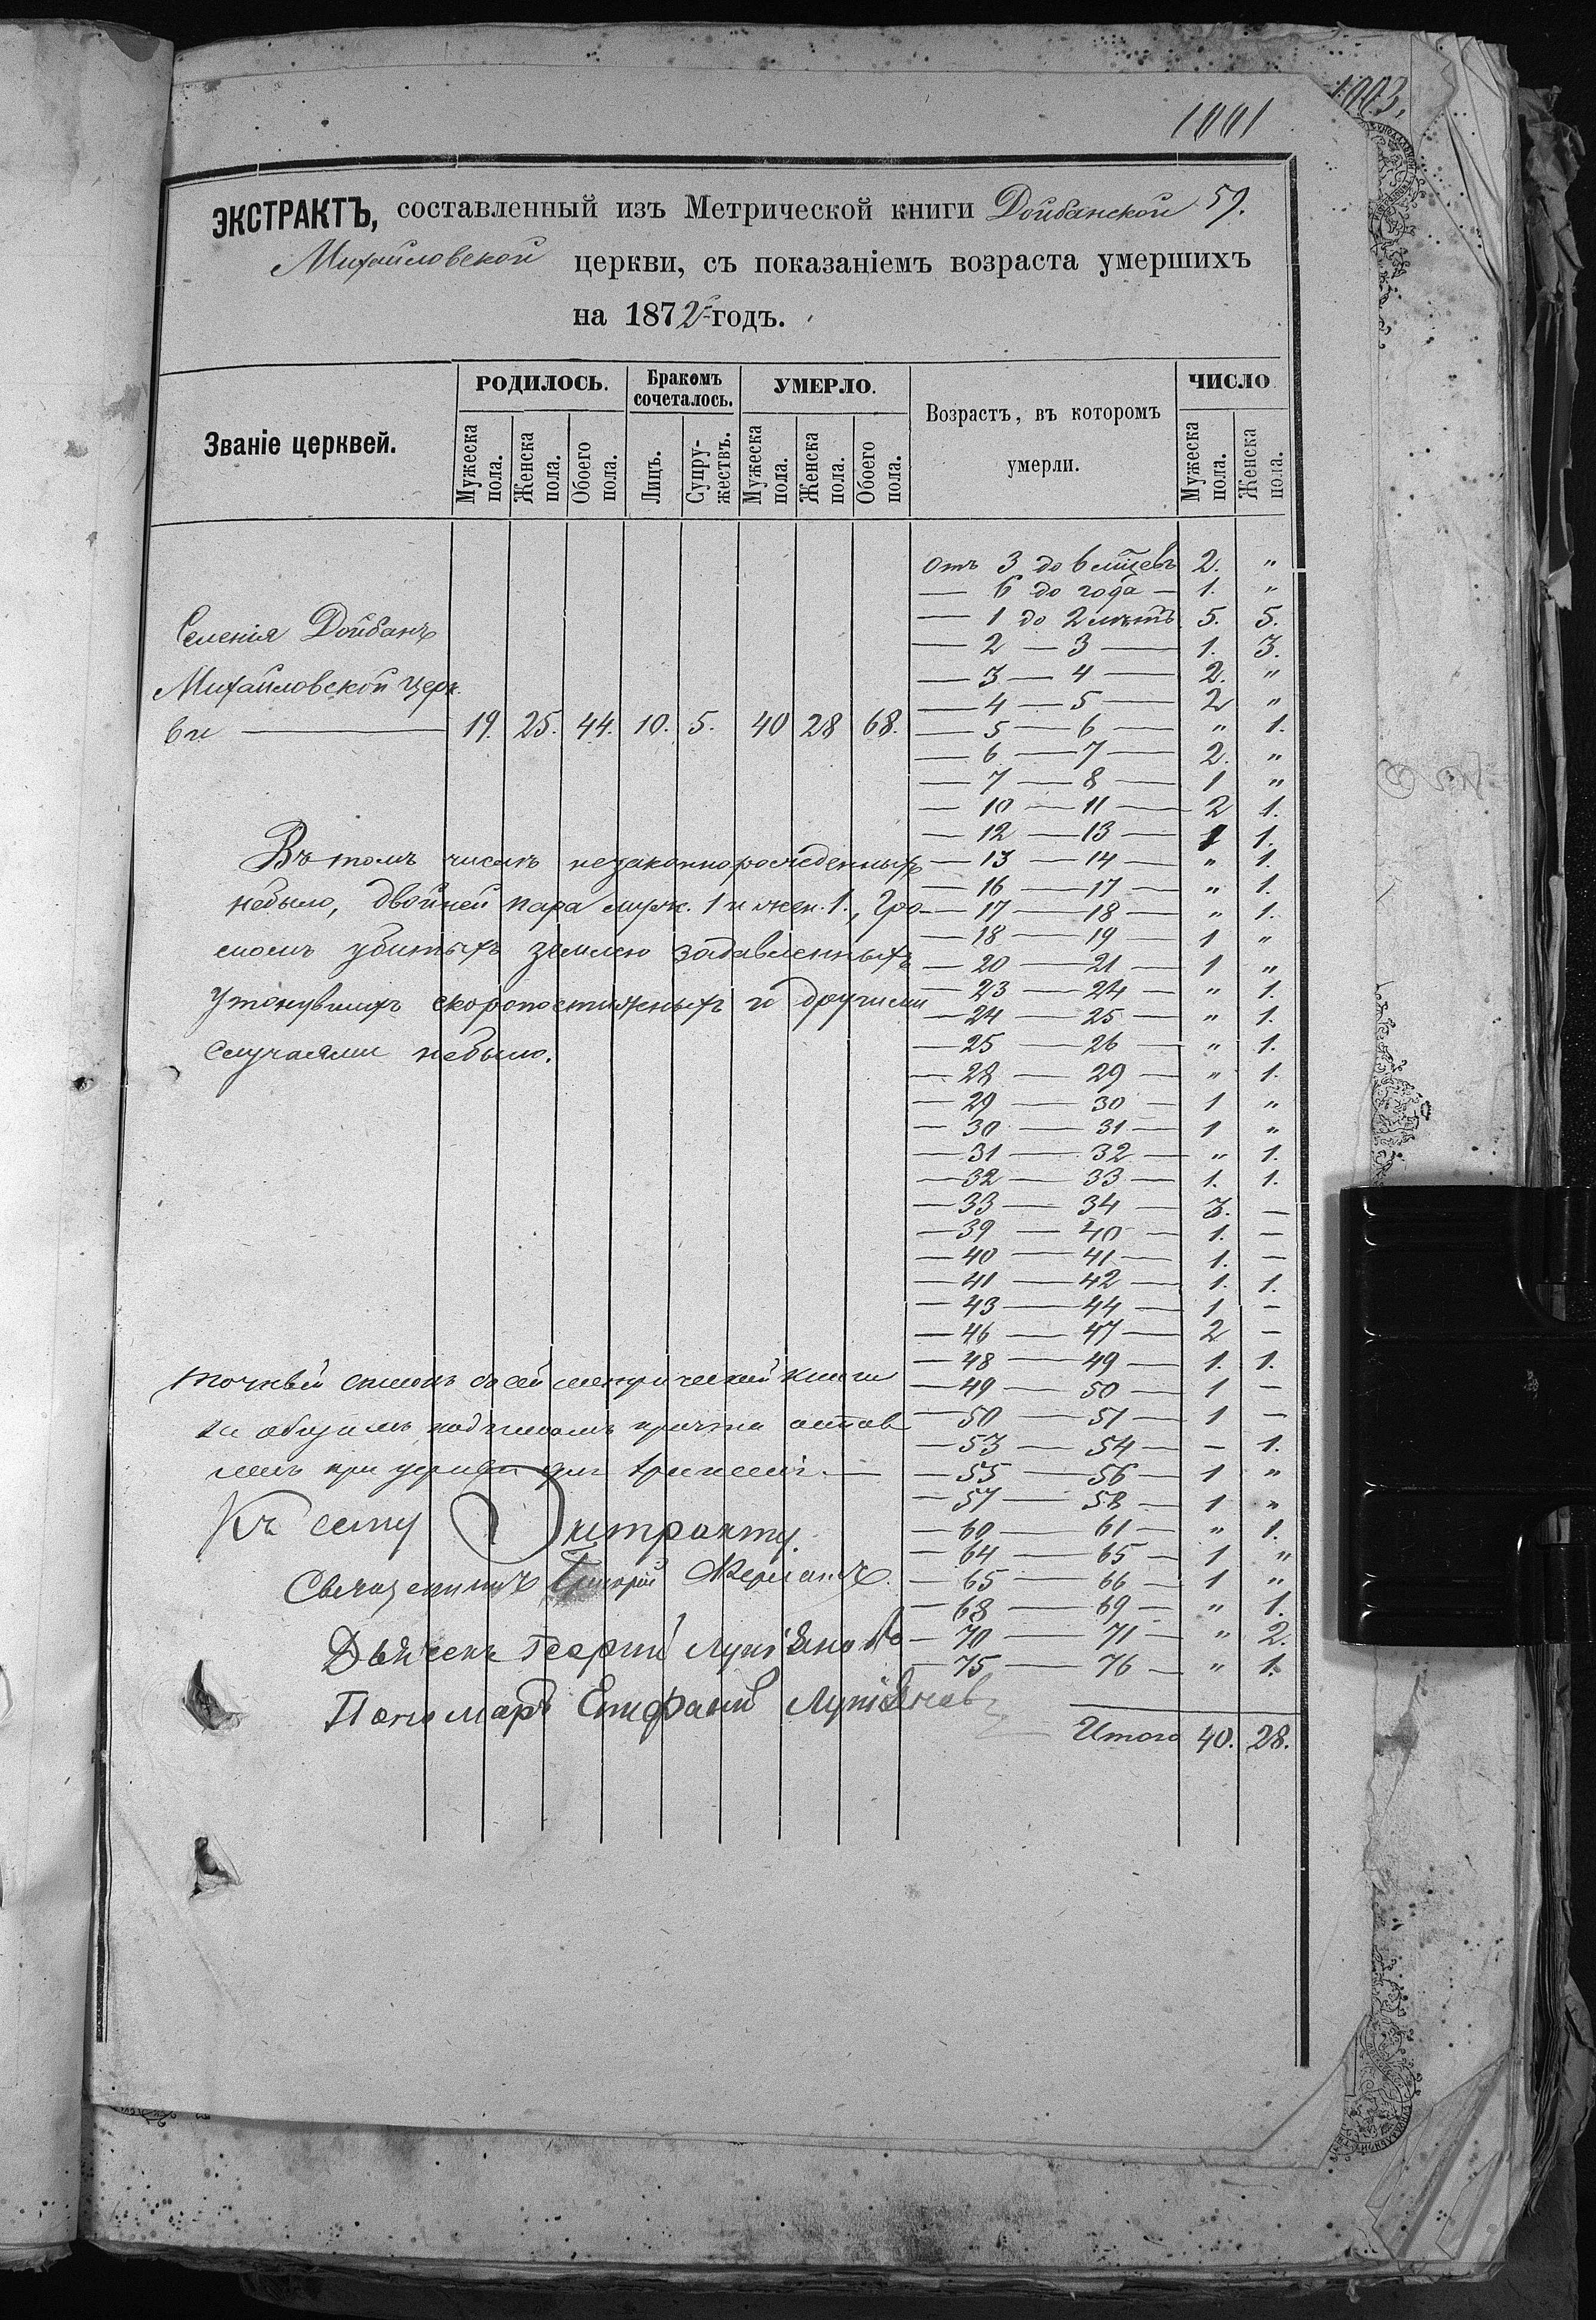 1001
1003,
ЭКСТРАКТЪ, составленный изъ Метрической книги Дойбанской 59.
Михайловской церкви, съ показаніемъ возраста умершихъ
на 1872 годъ.
Званіе церквей.
РОДИЛОСЬ.
Мужеска пола.
Женска пола.
Обоего пола.
Бракомъ сочеталось.
Лицъ.
Супружествъ.
УМЕРЛО.
Мужеска пола.
Женска пола.
Обоего пола.
Возрастъ, въ которомъ
умерли.
ЧИСЛО
Мужеска пола.
Женска пола.
Селенія Дойбанъ
Михайловской Церк.
ви — 19. 25. 44. 10. 5. 40 28 68.
Въ томъ числѣ незаконнорожденныхъ
небыло, двойней пара муж. 1 и жен. 1., Гро
момъ убитыхъ землею задавленныхъ
утонувшихъ скоропостижныхъ и другими
случаями небыло.
точный списокъ сей метрической книги
за общимъ подписомъ причта оставленъ при церкви
Къ сему Экстракту.
Священникъ Григорій
Дьячекъ Георгий Лупіяновъ
Пономарь Епифаний Лупіяновъ
Отъ 3 до 6 мѣцевъ 2. "
— 6 до года — 1. "
— 1 до 2 лѣтъ 5. 5.
— 2 — 3 — 1. 3.
— 3 — 4 — 2. "
— 4 — 5 — 2 "
— 5 — 6 — " 1.
— 6 — 7 — 2. "
— 7 — 8 — 1 "
— 10 — 11 — 2 1.
— 12 — 13 — 1 1.
— 13 — 14 — " 1.
— 16 — 17 — " 1.
— 17 — 18 — " 1.
— 18 — 19 — 1 "
— 20 — 21 — 1 "
— 23 — 24 — " 1.
— 24 — 25 — " 1.
— 25 — 26 — " 1.
— 28 — 29 — " 1.
— 29 — 30 — 1 "
— 30 — 31 — 1 "
— 31 — 32 — " 1.
— 32 — 33 — 1. 1.
— 33 — 34 — 3. —
— 39 — 40 — 1. —
— 40 — 41 — 1. —
— 41 — 42 — 1. 1.
— 43 — 44 — 1 —
— 46 — 47 — 2 —
— 48 — 49 — 1. 1.
— 49 — 50 — 1 —
— 50 — 51 — 1 —
— 53 — 54 — — 1.
— 55 — 56 — 1 "
— 57 — 58 — 1 "
— 60 — 61 — " 1.
— 64 — 65 — 1 "
— 65 — 66 — 1 "
— 68 — 69 — " 1.
— 70 — 71 — " 2.
— 75 — 76 — " 1.
Итого 40. 28.